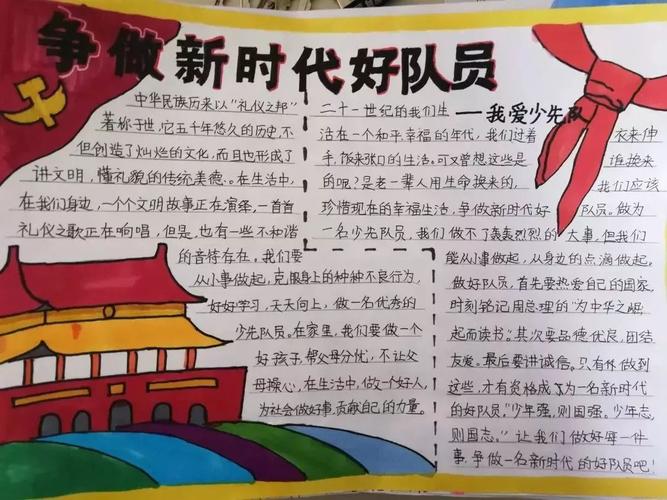 争做新时代好队员
——我爱少先队
中华民族历来以“礼仪之邦”
著称于世,它五千年悠久的历史,不
但创造了灿烂的文化,而且也形成了
讲文明,懂礼貌的传统美德。在生活中,
在我们身边,一个个文明故事正在演绎,一首首
礼仪之歌正在响唱,但是,也有一些不和谐
的音符存在。我们要
从小事做起,克服身上的种种不良行为,
好好学习,天天向上,做一名优秀的
少先队员。在家里,我们要做一个
好孩子,帮父母分忧,不让父
母操心,在生活中,做一个好人,
为社会做好事,贡献自己的力量。
二十一世纪的我们生
活在一个和平,幸福的年代,我们过着 衣来伸
手,饭来张口的生活。可又曾想这些是 谁换来
的呢?是老一辈人用生命换来的, 我们应该
珍惜现在的幸福生活,争做新时代好 队员。做为
一名少先队员,我们做不了轰轰烈烈的大事,但我们
能从小事做起,从身边的点滴做起。
做好队员,首先要热爱自己的国家,
时刻铭记周总理的“为中华之崛
起而读书”。其次要品德优良,团结
友爱。最后要讲诚信。只有做到
这些,才有资格成为一名新时代
的好队员。“少年强,则国强。少年志,
则国志。”让我们做好每一件
事,争做一名新时代的好队员吧!